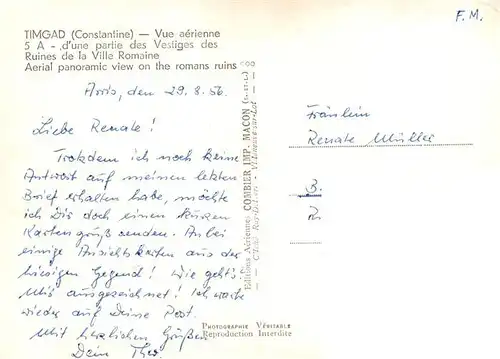 TIMGAD (Constantine) — Vue aérienne
5 A - d'une partie des Vestiges des
Ruines de la Ville Romaine
Aerial panoramic view on the romans ruins
F. M.
Arris, den 29.8.56
Liebe Renate!
Trotzdem ich noch keine
Antwort auf meinen letzten
Brief erhalten habe, möchte
ich Dir doch einen kurzen
Kartengruß senden. Anbei
einige Ansichtskarten aus der
hiesigen Gegend! Wie geht's?
Mir ausgezeichnet! Ich warte
wieder auf Deine Post.
Mit herzlichen Grüßen
Dein
Editions Aériennes COMBIER IMP. MACON (S.-et-L.)
Fräulein
Renate Müller
B.
PHOTOGRAPHIE VÉRITABLE
Reproduction Interdite